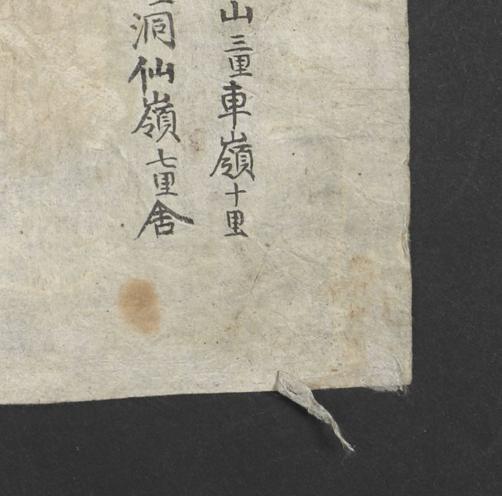 山三里車嶺十里
洞仙嶺七里舍